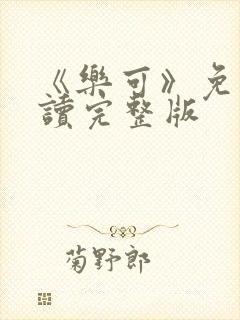 《樂可》免
讀完整版
菊野郎